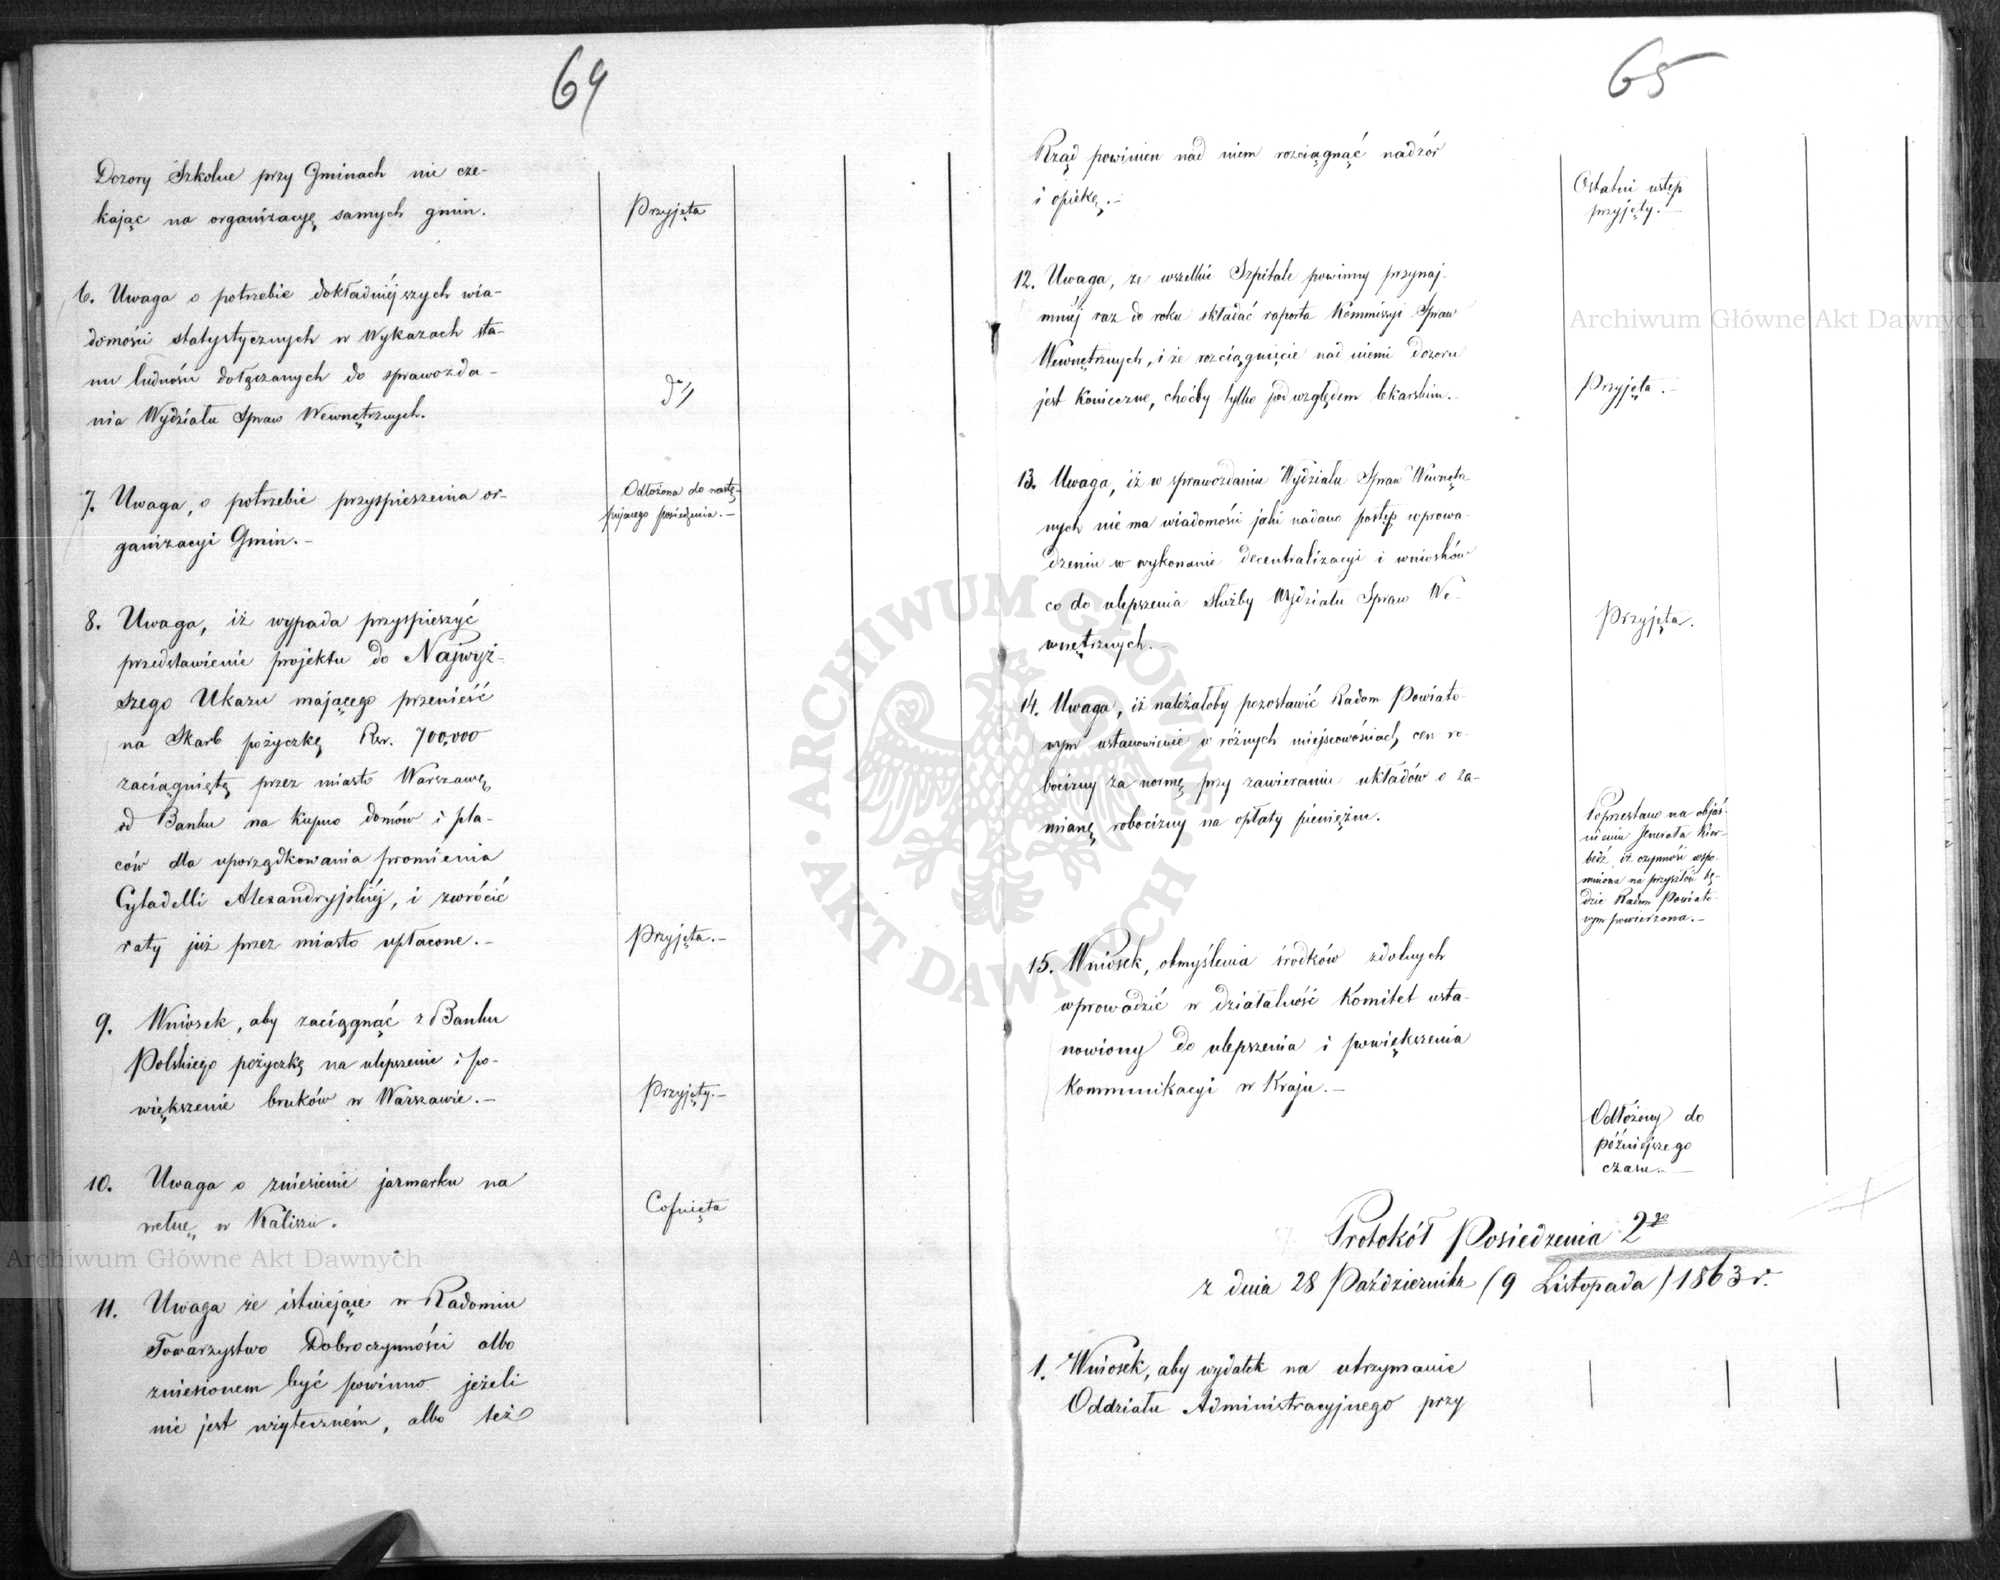 64
Dozory Szkolne przy Gminach nie cze-
kając na organizacyę samych gmin.
Przyjęta
6. Uwaga o potrzebie dokładniejszych wia-
domości statystycznych w Wykazach sta-
nu ludności dołączanych do sprawozda-
nia Wydziału Spraw Wewnętrznych.
dº
7. Uwaga, o potrzebie przyspieszenia or-
ganizacyi Gmin.-
Odłożona do nastę-
pującego posiedzenia.-
8. Uwaga, iż wypada przyspieszyć
przedstawienie projektu do Najwyż-
szego Ukazu mającego przenieść
na Skarb pożyczkę Rsr. 700,000
zaciągniętą przez miasto Warszawę
od Banku na kupno domów i pla-
ców dla uporządkowania promienia
Cytadelli Alexandryjskiéj, i zwrócić
raty już przez miasto upłacone.-
Przyjęta.-
9. Wniosek, aby zaciągnąć z Banku
Polskiego pożyczkę na ulepszenie i po-
większenie bruków w Warszawie.-
Przyjęty.-
10. Uwaga o zniesieniu jarmarku na
wełnę w Kaliszu.
Cofnięta
11. Uwaga że istniejące w Radomiu
Towarzystwo Dobroczynności albo
zniesionem być powinno jeżeli
nie jest użytecznem, albo też
65
Rząd powinien nad niem rozciągnąć nadzór
i opiekę.-
Ostatni ustęp
przyjęty.-
12. Uwaga, że wszelkie Szpitale powinny przynaj-
mniéj raz do roku składać raporta Kommissyi Spraw
Wewnętrznych, i że rozciągnięcie nad niemi dozoru
jest konieczne, choćby tylko pod względem lekarskim.-
Przyjęta.-
13. Uwaga, iż w sprawozdaniu Wydziału Spraw Wewnętrz
nych nie ma wiadomości jaki nadano postęp wprowa-
dzeniu w wykonanie decentralizacyi i wniosków
co do ulepszenia służby Wydziału Spraw We-
wnętrznych.-
Przyjęta.
14. Uwaga, iż należałoby pozostawić Radom Powiato-
wym ustanowienie w różnych miejscowościach, cen ro-
bocizny za normę przy zawieraniu układów o za-
mianę robocizny na opłaty pieniężne.
Poprzestano na objaś-
nieniu Jenerała Kier-
bedź, iż czynność wspo-
miniona na przyszłość bę-
dzie Radom Powiato-
wym powierzona.-
15. Wniosek, obmyślenia środków zdolnych
wprowadzić w działalność Komitet usta-
nowiony do ulepszenia i powiększenia
Kommunikacyi w Kraju.-
Odłożony do
późniejszego
czasu.-
Protokół Posiedzenia 2go
z dnia 28 Października (9 Listopada) 1863 r.
1. Wniosek, aby wydatek na utrzymanie
Oddziału Administracyjnego przy
Archiwum Główne Akt Dawnych
Archiwum Główne Akt Dawnych
ARCHIWUM GŁÓWNE
AKT DAWNYCH